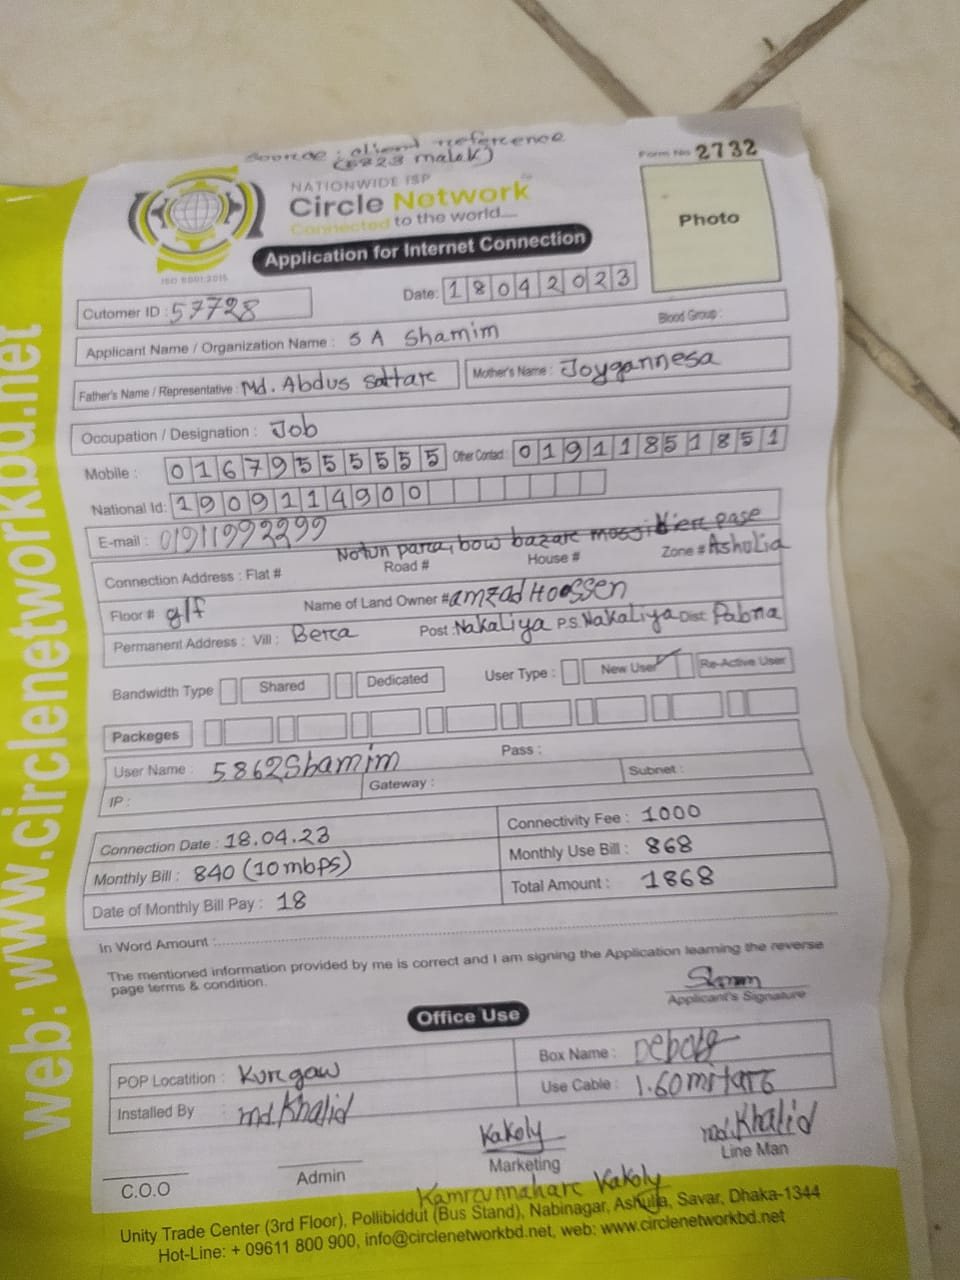 Source : client reference
(5823 malek)
Form No 2732
NATIONWIDE ISP
Circle Network
Connected to the world....
ISO 9001:2015
Photo
Application for Internet Connection
Date: 18042023
Cutomer ID : 57728
Blood Group :
Applicant Name / Organization Name : S A Shamim
Father's Name / Representative : Md. Abdus Sattar Mother's Name : Joygannesa
Occupation / Designation : Job
Mobile : 01679555555 Other Contact : 01911851851
National Id: 1909114900
E-mail : 01911992299
Notun para, bow bazar
Connection Address : Flat # Road # House # Zone # Ashulia
Floor # g/f Name of Land Owner # amzad Hoossen
Permanent Address : Vill : Bera Post : Nakaliya P.S. Nakaliya Dist. Pabna
Bandwidth Type Shared Dedicated User Type : New User Re-Active User
Packeges
User Name : 5862Shamim Pass :
IP : Gateway : Subnet :
Connection Date : 18.04.23 Connectivity Fee : 1000
Monthly Bill : 840 (10mbps) Monthly Use Bill : 868
Date of Monthly Bill Pay : 18 Total Amount : 1868
In Word Amount :
The mentioned information provided by me is correct and I am signing the Application learning the reverse
page terms & condition.
Applicant's Signature
Office Use
POP Locatition : Kurgaw Box Name :
Installed By md. Khalid Use Cable :
Kakoly md. Khalid
C.O.O Admin Marketing Line Man
Kamrunnahar Kakoly
Unity Trade Center (3rd Floor), Pollibiddut (Bus Stand), Nabinagar, Ashulia, Savar, Dhaka-1344
Hot-Line: + 09611 800 900, info@circlenetworkbd.net, web: www.circlenetworkbd.net
web: www.circlenetworkbd.net